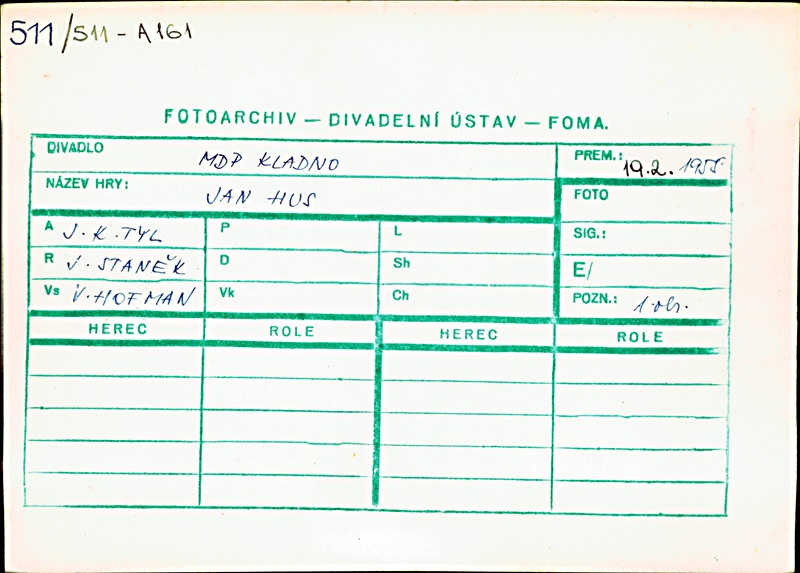 511/S11-A161
FOTOARCHIV — DIVADELNÍ ÚSTAV — FOMA.
DIVADLO MDP KLADNO
PREM.: 19.2. 1955
NÁZEV HRY: JAN HUS
FOTO
A J.K.TYL
P
L
SIG.:
R J.STANĚK
D
Sh
E/
Vs V.HOFMAN
Vk
Ch
POZN.: 1 obr.
HEREC ROLE HEREC ROLE